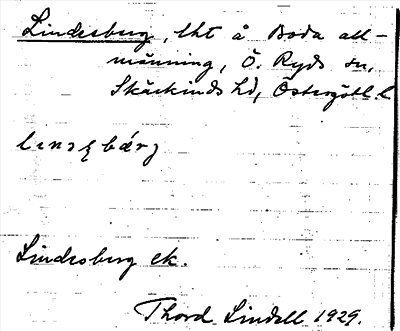 Lindesberg, lht å Boda all-
männing, Ö. Ryds sn,
Skärkinds hd, Östergötl. l
Lindesberg ek.
Thord Lindell 1929.